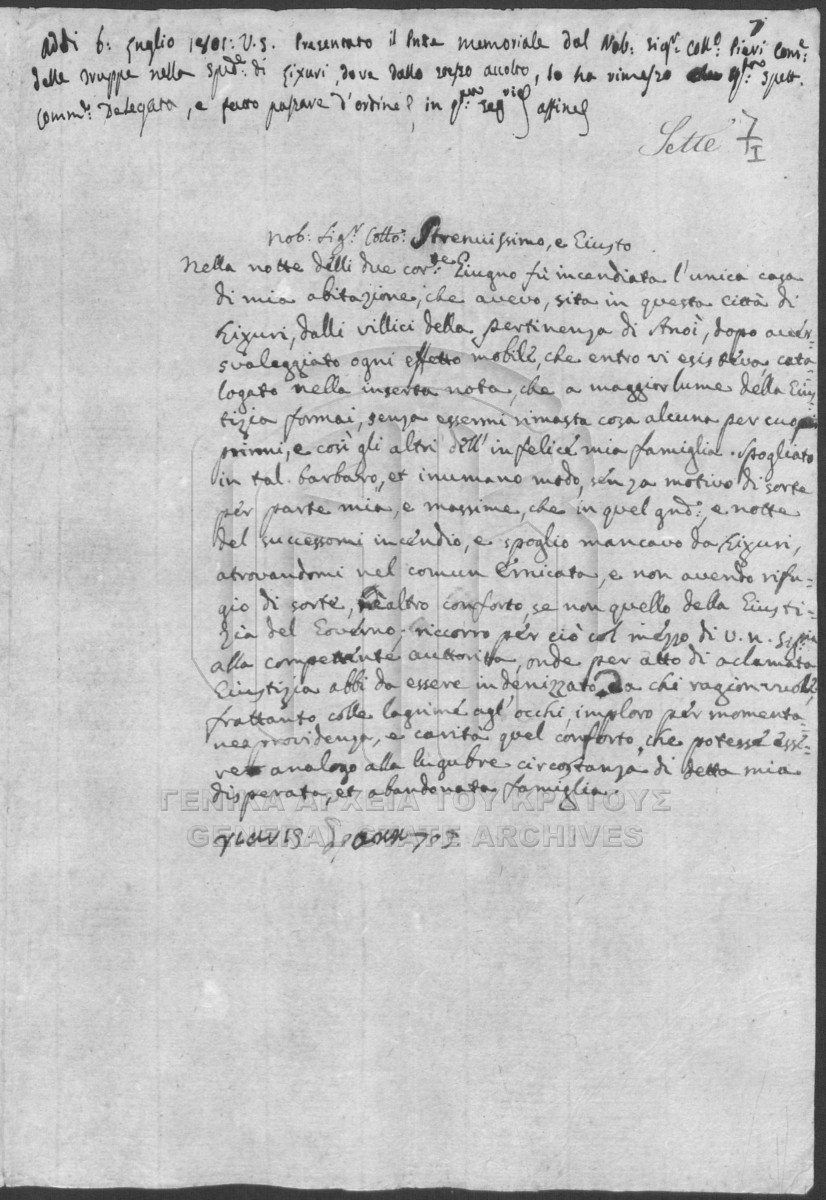 7
Addi 6: Luglio 1801: V. S. Presentato il Pnte memoriale dal Nob: Sigr Collo: Pieri Come:
delle truppe nella di Lixuri, dove dallo stesso accolto, lo ha rimesso Spett.
Comm: Delegata, e fatto passare d'ordine in affine
Sette 7/I
Nob: Sigr: Collo: Strenuissimo, e Giusto
Nella notte delli due corte: Giugno fù incendiata l'unica casa
di mia abitazione, che avevo, sita in questa Città di
Lixuri, dalli villici della pertinenza di Anoì, dopo aver
svaleggiato ogni effetto mobile, che entro vi esisteva, cata-
logato nella inserta nota, che a maggior lume della Gius-
tizia formai, senza essermi rimasta cosa alcuna per cuo-
prirmi, e così gli altri dell'infelice mia famiglia. Spogliato
in tal barbaro, et inumano modo, senza motivo di sorte
per parte mia, e massime, che in quel gno:, e notte
del successomi incendio, e spoglio mancavo da Lixuri,
atrovandomi nel comun Ernicata, e non avendo rifu-
gio di sorte, nè altro conforto, se non quello della Giusti-
zia del Governo; riccorro per ciò col mezzo di V. N. Sigria
alla competente auttorità, onde per atto di aclamata
Giustizia abbi da essere indenizzato da chi ragion vuole,
frattanto colle lagrime agl'occhi, imploro per momenta-
nea providenza, e carità quel conforto, che potesse esse-
re analogo alla lugubre circostanza di detta mia
disperata, et abandonata famiglia.
ΓΕΝΙΚΑ ΑΡΧΕΙΑ ΤΟΥ ΚΡΑΤΟΥΣ
GENERAL STATE ARCHIVES